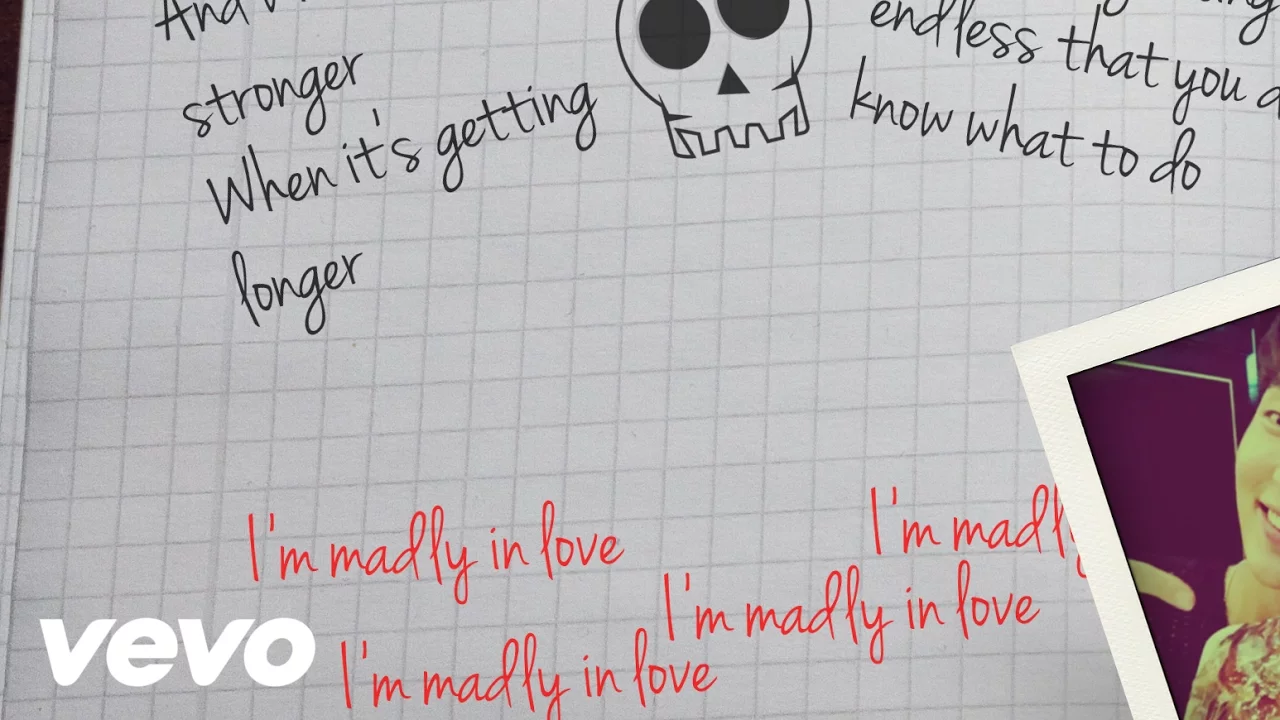 And
stronger
When it's getting
longer
endless that you
know what to do
I'm madly in love
I'm
I'm madly in love
I'm madly in love
vevo